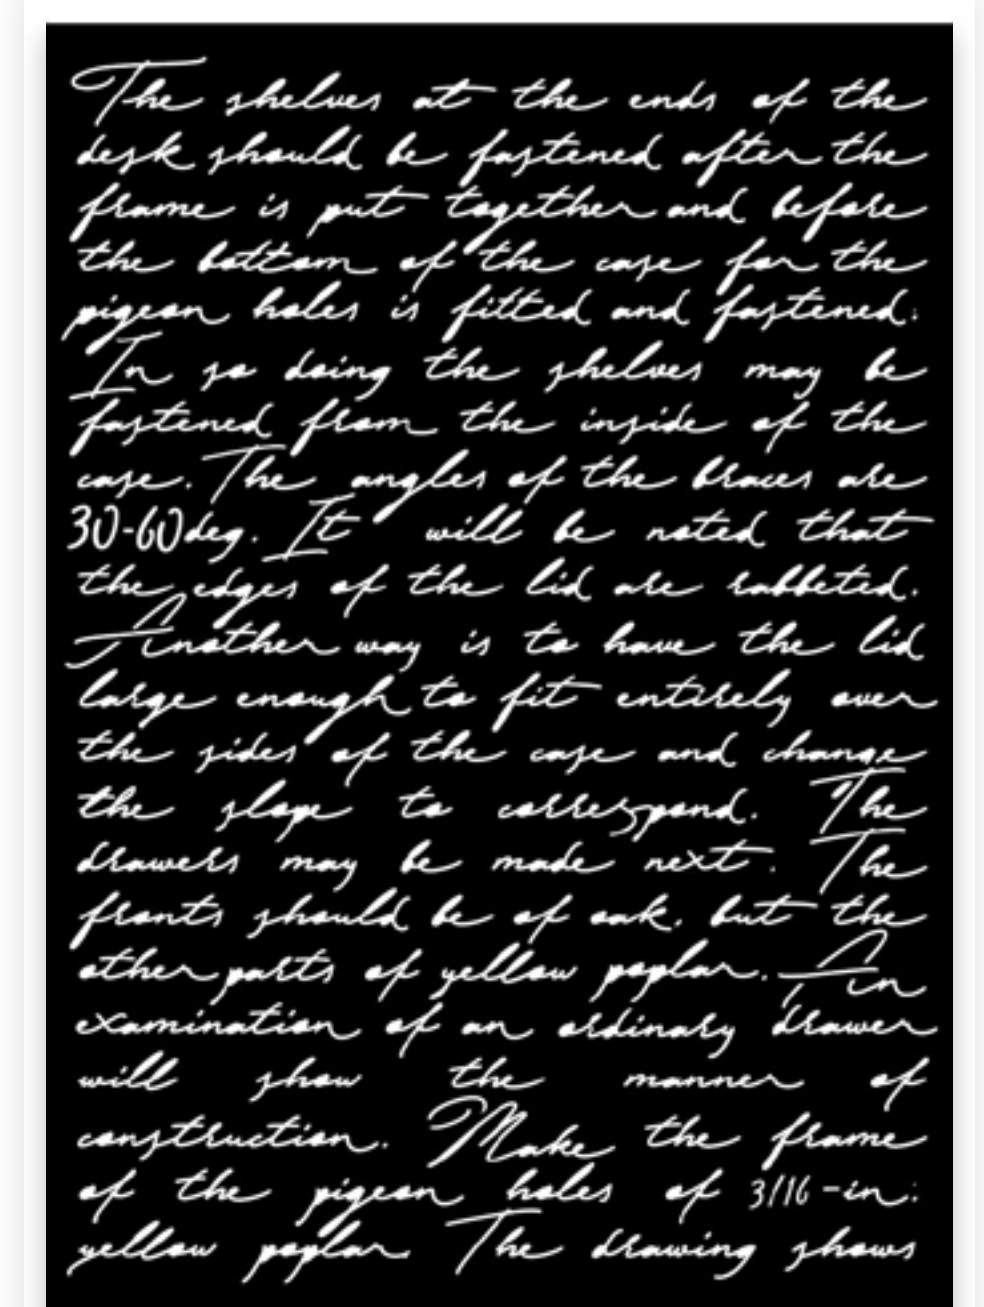 The shelves at the ends of the
desk should be fastened after the
frame is put together and before
the bottom of the case for the
pigeon holes is fitted and fastened.
In so doing the shelves may be
fastened from the inside of the
case. The angles of the braces are
30-60deg. It will be noted that
the edges of the lid are rabbeted.
Another way is to have the lid
large enough to fit entirely over
the sides of the case and change
the slope to correspond. The
drawers may be made next. The
fronts should be of oak, but the
other parts of yellow poplar. An
examination of an ordinary drawer
will show the manner of
construction. Make the frame
of the pigeon holes of 3/16-in.
yellow poplar. The drawing shows